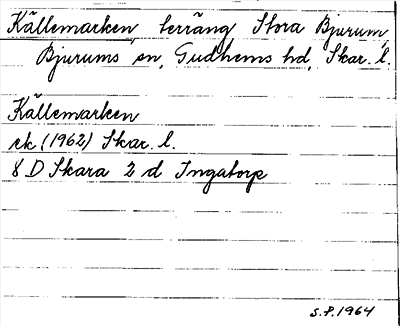 Källemarken, terräng Stora Bjurum,
Bjurums sn, Gudhems hd, Skar. l.
Källemarken
ek (1962) Skar. l.
8 D Skara 2 d Ingatorp
S.P. 1964